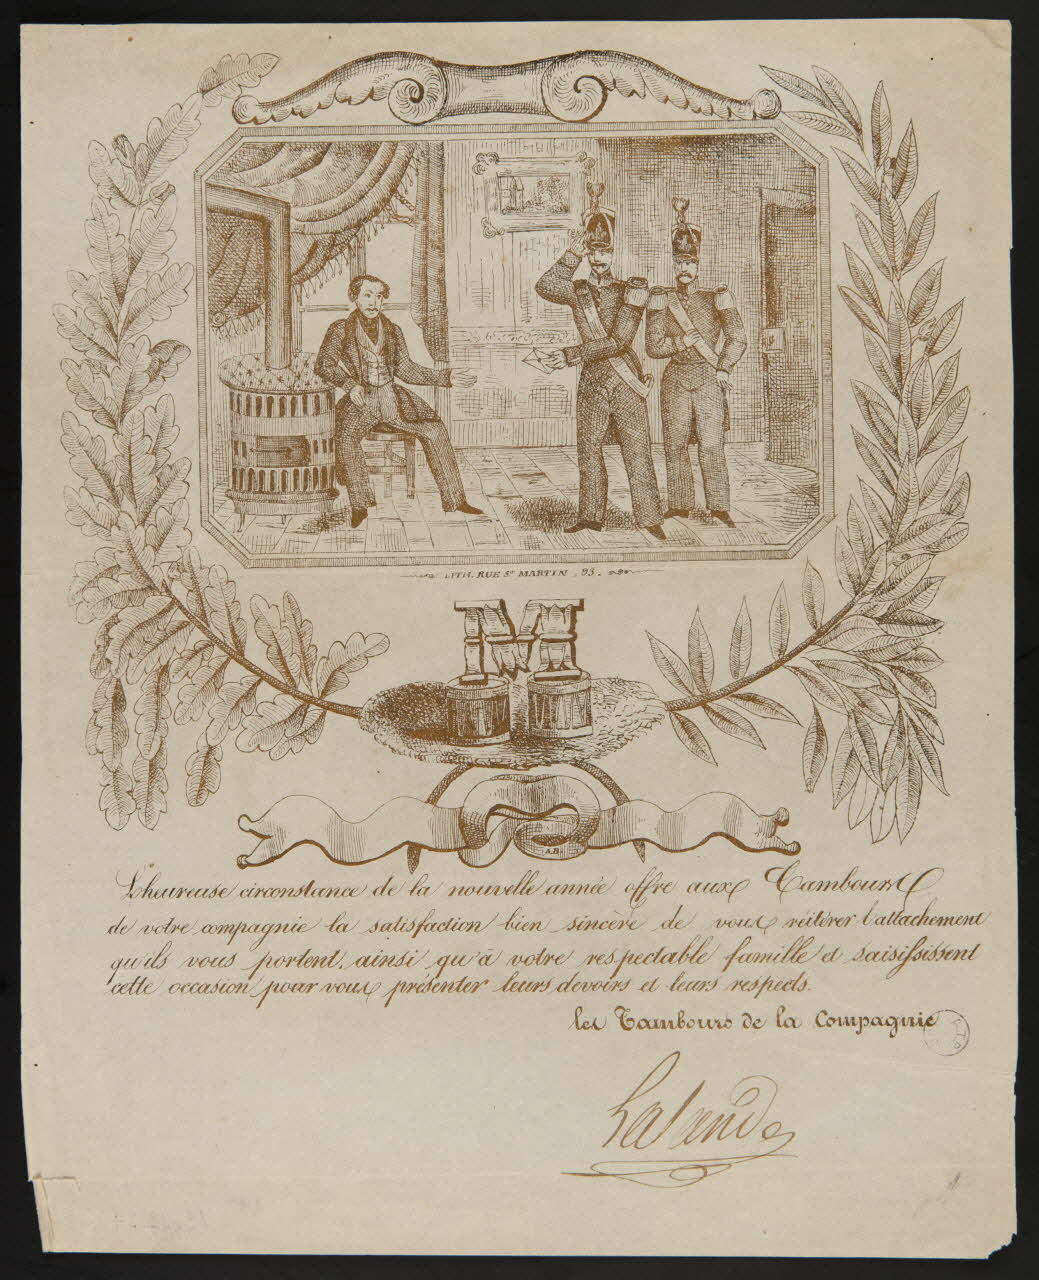 LITH. RUE St MARTIN, 93.
M
A.B.
L'heureuse circonstance de la nouvelle année offre aux Tambours
de votre compagnie la satisfaction bien sincère de vous réitérer l'attachement
qu'ils vous portent, ainsi qu'à votre respectable famille et saisissent
cette occasion pour vous présenter leurs devoirs et leurs respects.
les Tambours de la Compagnie